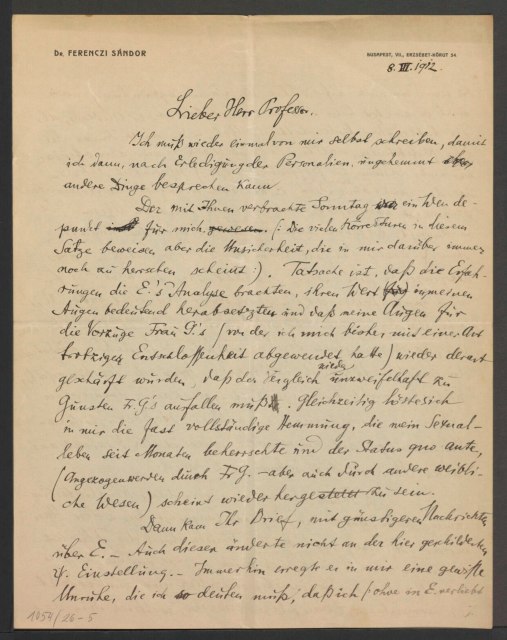 Dr. FERENCZI SÁNDOR
BUDAPEST, VII., ERZSÉBET-KÖRUT 54.
8. III. 1912.
Lieber Herr Professor.
Ich muß wieder einmal von mir selbst schreiben, damit
ich dann, nach Erledigung der Personalien, ungehemmt
andere Dinge besprechen kann.
Der mit Ihnen verbrachte Sonntag ein Wende-
punkt für mich. (: Die vielen Korrekturen in diesem
Satze beweisen aber die Unsicherheit, die in mir darüber immer
noch zu herrschen scheint :). Tatsache ist, daß die Erfah-
rungen die E.'s Analyse brachten, ihren Wert in meinen
Augen bedeutend herabsetzten und daß meine Augen für
die Vorzüge Frau G's (von der ich mich bisher mit einer Art
trotzigen Entschlossenheit abgewendet hatte) wieder derart
geschärft wurden, daß der Vergleich wieder unzweifelhaft zu
Gunsten Fr G's ausfallen muß. Gleichzeitig löste sich
in mir die fast vollständige Hemmung, die mein Sexual-
leben seit Monaten beherrschte und der Status quo ante,
(Angezogenwerden durch Fr G. – aber auch durch andere weibli-
che Wesen) scheint wieder hergestellt zu sein.
Dann kam Ihr Brief, mit günstigeren Nachrichten
über E. – Auch dieser änderte nicht an der hier geschilderten
Einstellung. – Immerhin erregte er in mir eine gewisse
Unruhe, die ich so deuten muß, daß ich (: ohne in E. verliebt
1054/26-5